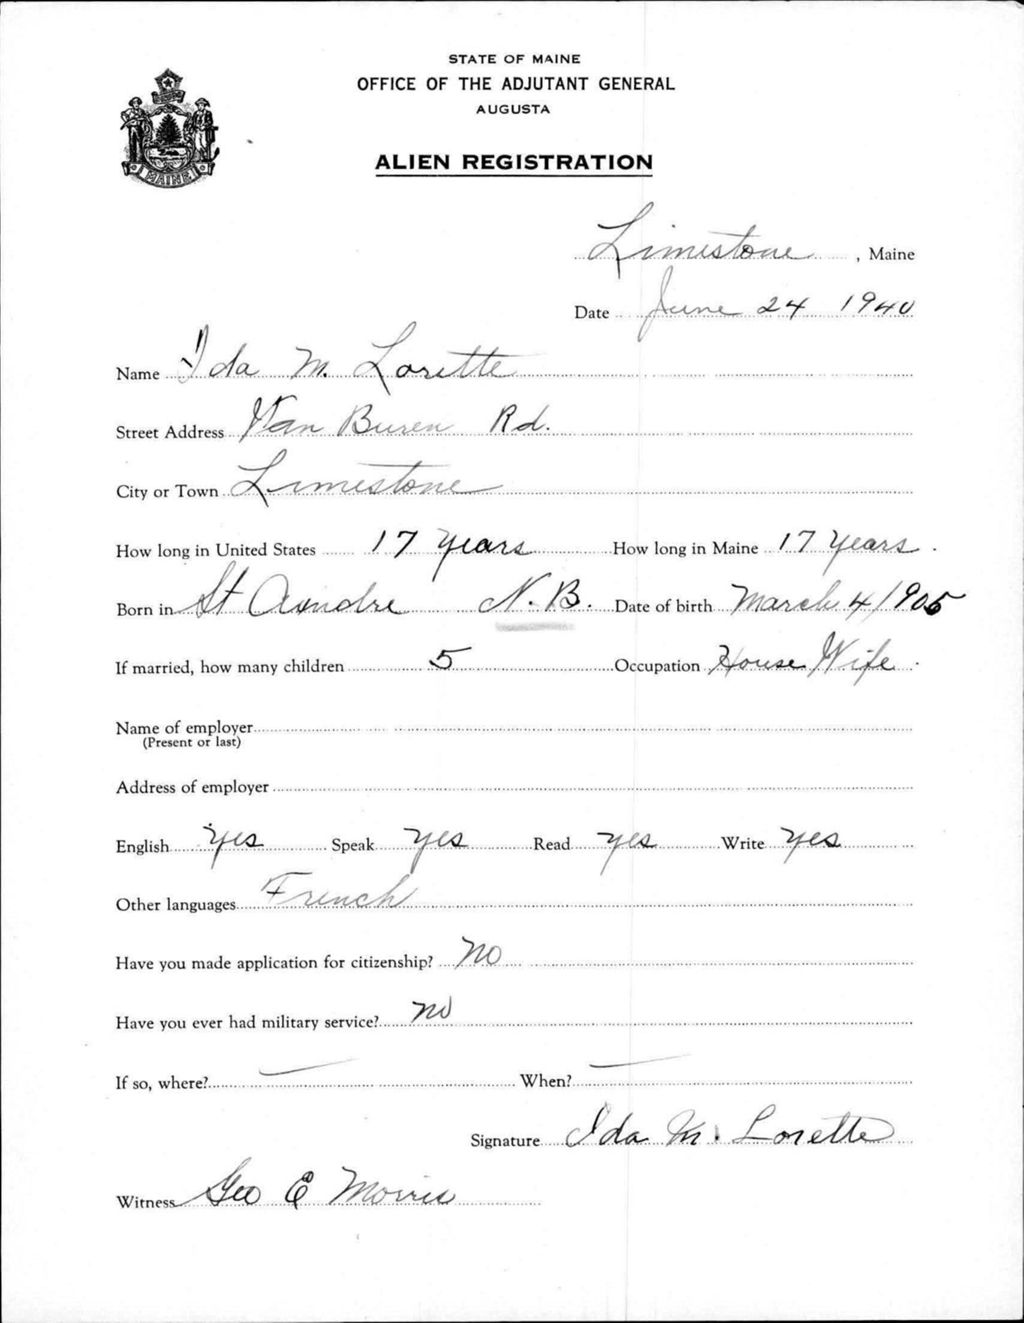 STATE OF MAINE
OFFICE OF THE ADJUTANT GENERAL
AUGUSTA
ALIEN REGISTRATION
MAINE
Limestone, Maine
Date June 24 1940
Name Ida M. Lorette
Street Address Van Buren Rd.
City or Town Limestone
How long in United States 17 years How long in Maine 17 years.
Born in St Aondre N.B. Date of birth March 4/1905
If married, how many children 5 Occupation House Wife.
Name of employer
(Present or last)
Address of employer
English yes Speak yes Read yes Write yes
Other languages French
Have you made application for citizenship? No
Have you ever had military service? no
If so, where? — When? —
Signature Ida M. Lorette
Witness Geo E Morris